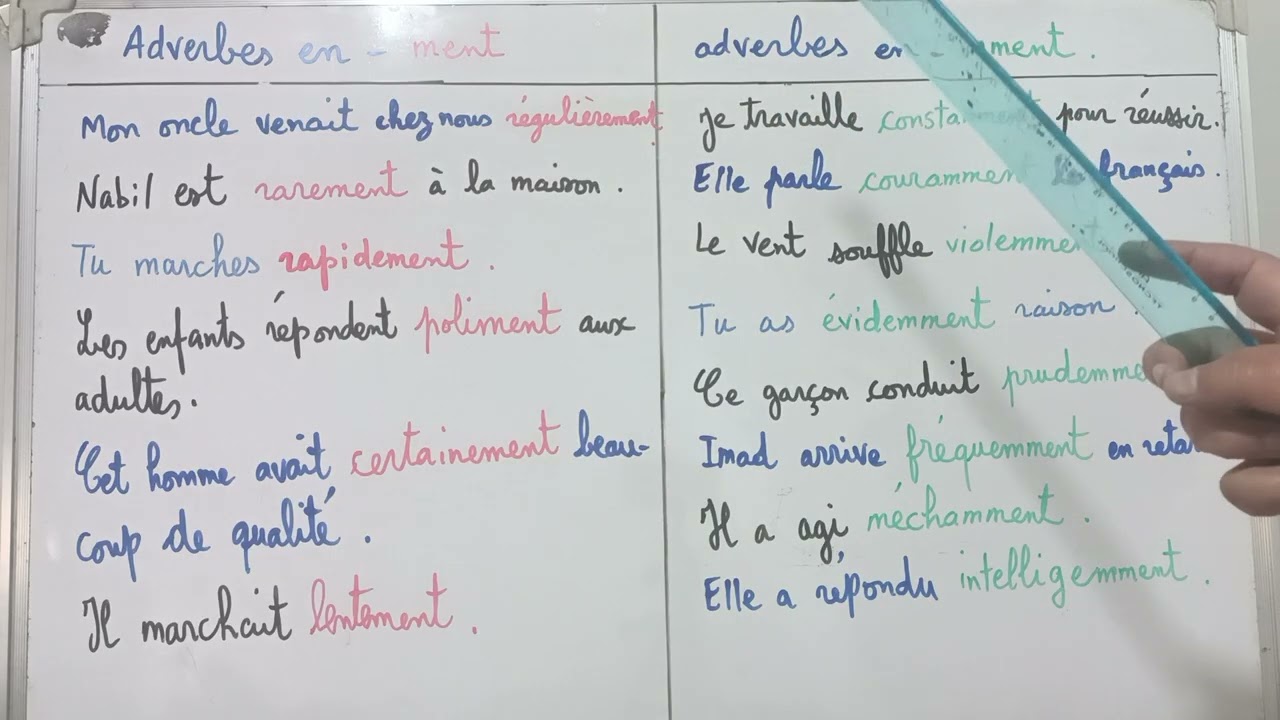 Adverbes en - ment
Mon oncle venait chez nous régulièrement.
Nabil est rarement à la maison.
Tu marches rapidement.
Les enfants répondent poliment aux
adultes.
Cet homme avait certainement beau-
coup de qualité.
Il marchait lentement.
adverbes en - mment.
Je travaille constamment pour réussir.
Elle parle couramment le français.
Le vent souffle violemment
Tu as évidemment raison.
Ce garçon conduit prudemme
Imad arrive fréquemment en reta
Il a agi méchamment.
Elle a répondu intelligemment.